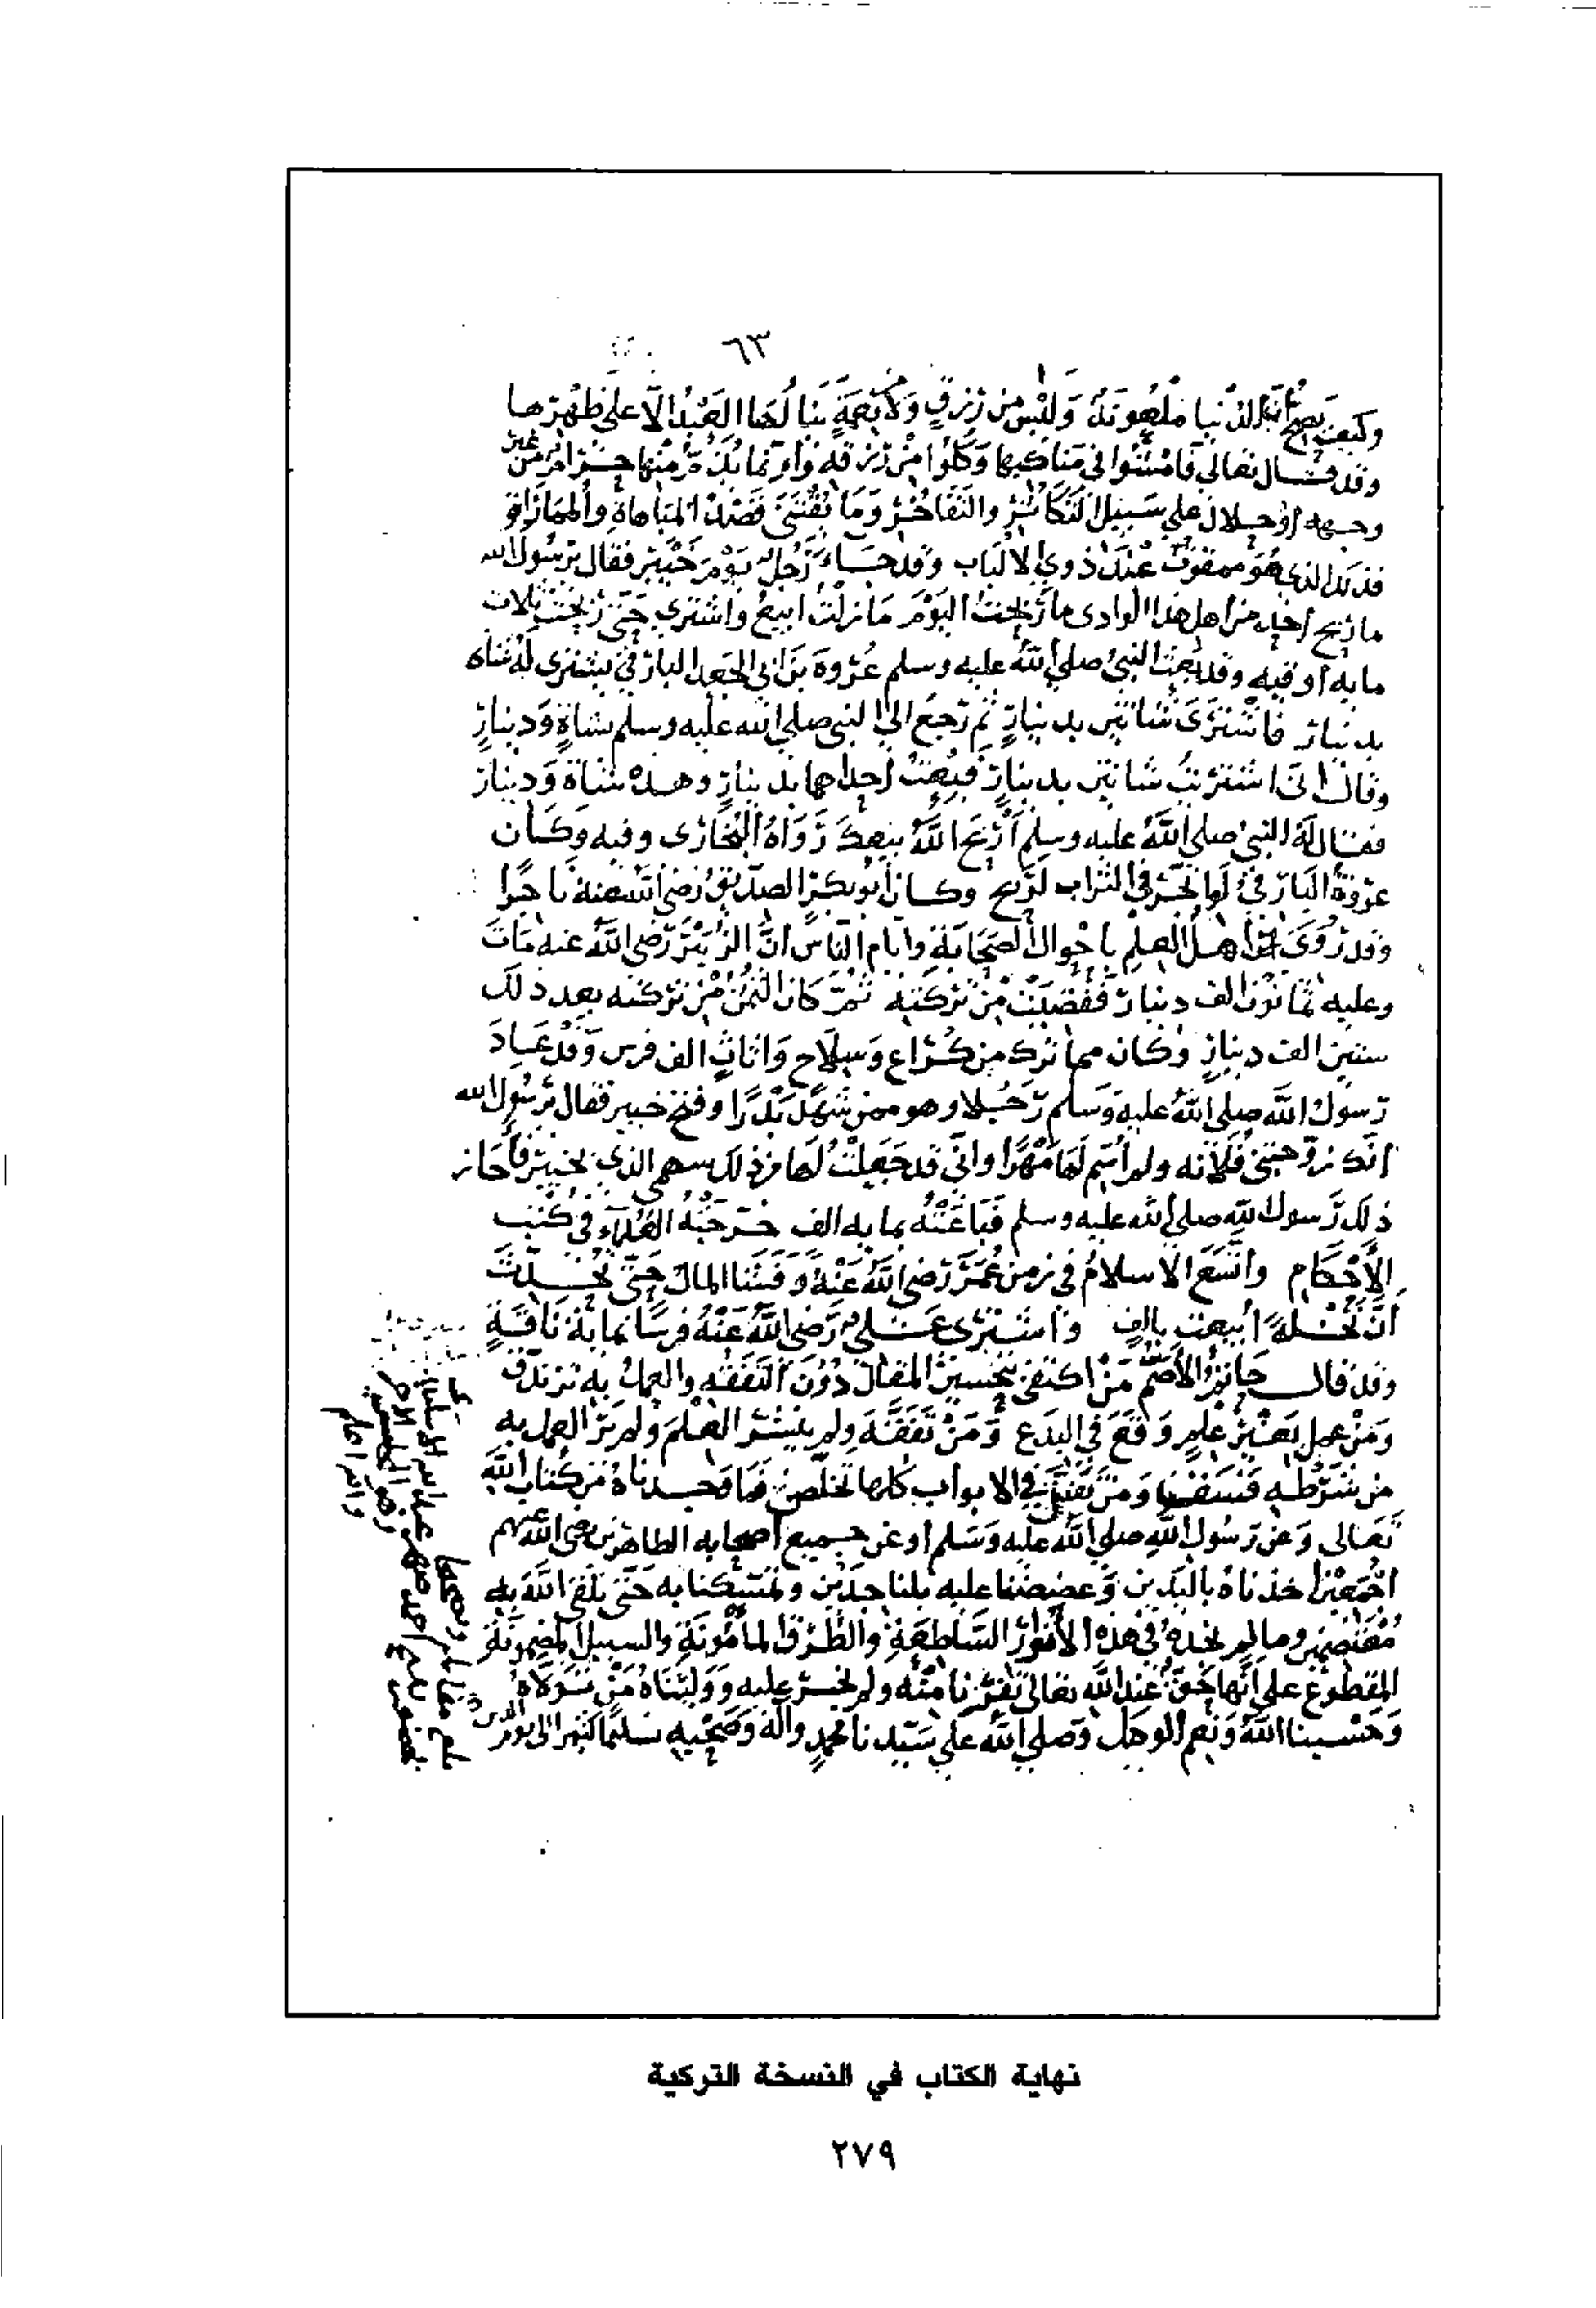 ٦٣
وكيف يصح أن الدنيا ملعونة وليس من رزق ولا نعمة ينالها العبد الا على ظهرها
وقد قال تعالى فامشوا في مناكبها وكلوا من رزقه وإنما يذم منها حرام من غير
وجهه أو حلال على سبيل التكاثر والتفاخر وما يقتنى قصد المباهاة والمماراة
فذلك الذي هو ممقوت عند ذوي الالباب وقد جاء رجل يوم خيبر فقال يرسول الله
ما ربح أحد من اهل هذا الوادى ما ربحت اليوم ما زلت ابيع واشتري حتى ربحت ثلاث
مايه أوقيه وقد بعث النبي صلى الله عليه وسلم عروة بن ابي الجعد البارقي يشترى له شاه
بدينار فاشترى شاتين بدينار ثم رجع الى النبى صلى الله عليه وسلم بشاة ودينار
وقال اني اشتريت شاتين بدينار فبعت احداهما بدينار وهذه شاة ودينار
فقال له النبي صلى الله عليه وسلم أربح الله بيعك رواه البخارى وفيه وكان
عروة البارقي لو اتجر في التراب لربح وكان أبو بكر الصديق رضي الله عنه تاجرا
وقد روى أهل العلم باحوال الصحابة وأيام الناس ان الزبير رضى الله عنه مات
وعليه ثمانون الف دينار فقضيت من تركته ثم كان الثمن من تركته بعد ذلك
ستين الف دينار وكان مما ترك من كراع وسلاح واثاث الف فرس وقد عاد
رسول الله صلى الله عليه وسلم رجلا وهو ممن شهد بدرا وفتح خيبر فقال يرسول الله
انك زوجتني فلانه ولم أسم لها مهرا واني قد جعلت لها من ذلك سهمي الذي بخيبر فأجاز
ذلك رسول الله صلى الله عليه وسلم فباعته بمايه الف خرجه العلماء في كتب
الأحكام واتسع الاسلام في زمن عمر رضى الله عنه وفشا المال حتى
أن نخلة أبيعت بالف واشترى على رضى الله عنه فرسا بمائة ناقة
وقد قال حاتم الأصم من اكتفى بتحسين المقال دون التفقه والعمل به تزندق
ومن عمل بغير علم وقع في البدع ومن تفقه ولم ينشر العلم ولم ير العمل به
من شرطه فسق ومن تفنن في الابواب كلها تخلص فما وجدناه من كتاب الله
تعالى وعن رسول الله صلى الله عليه وسلم أو عن جميع أصحابه الطاهرين رضي الله عنهم
اجمعين اخذناه باليدين وعضضنا عليه بلناجذين وتمسكنا به حتى نلقى الله به
معتصمين وما لم نجده في هذه الأنوار الساطعة والطرق المأمونة والسبيل المضمونة
المقطوع على أنها حق عند الله تعالى نفرنا منه ولم نحم عليه ووليناه من تولاه
وحسبنا الله ونعم الوكيل وصلى الله على سيدنا محمد وآله وصحبه سلم تسليما كثيرا الى يوم الدين
والله اعلم
نهاية الكتاب في النسخة التركية
٢٧٩